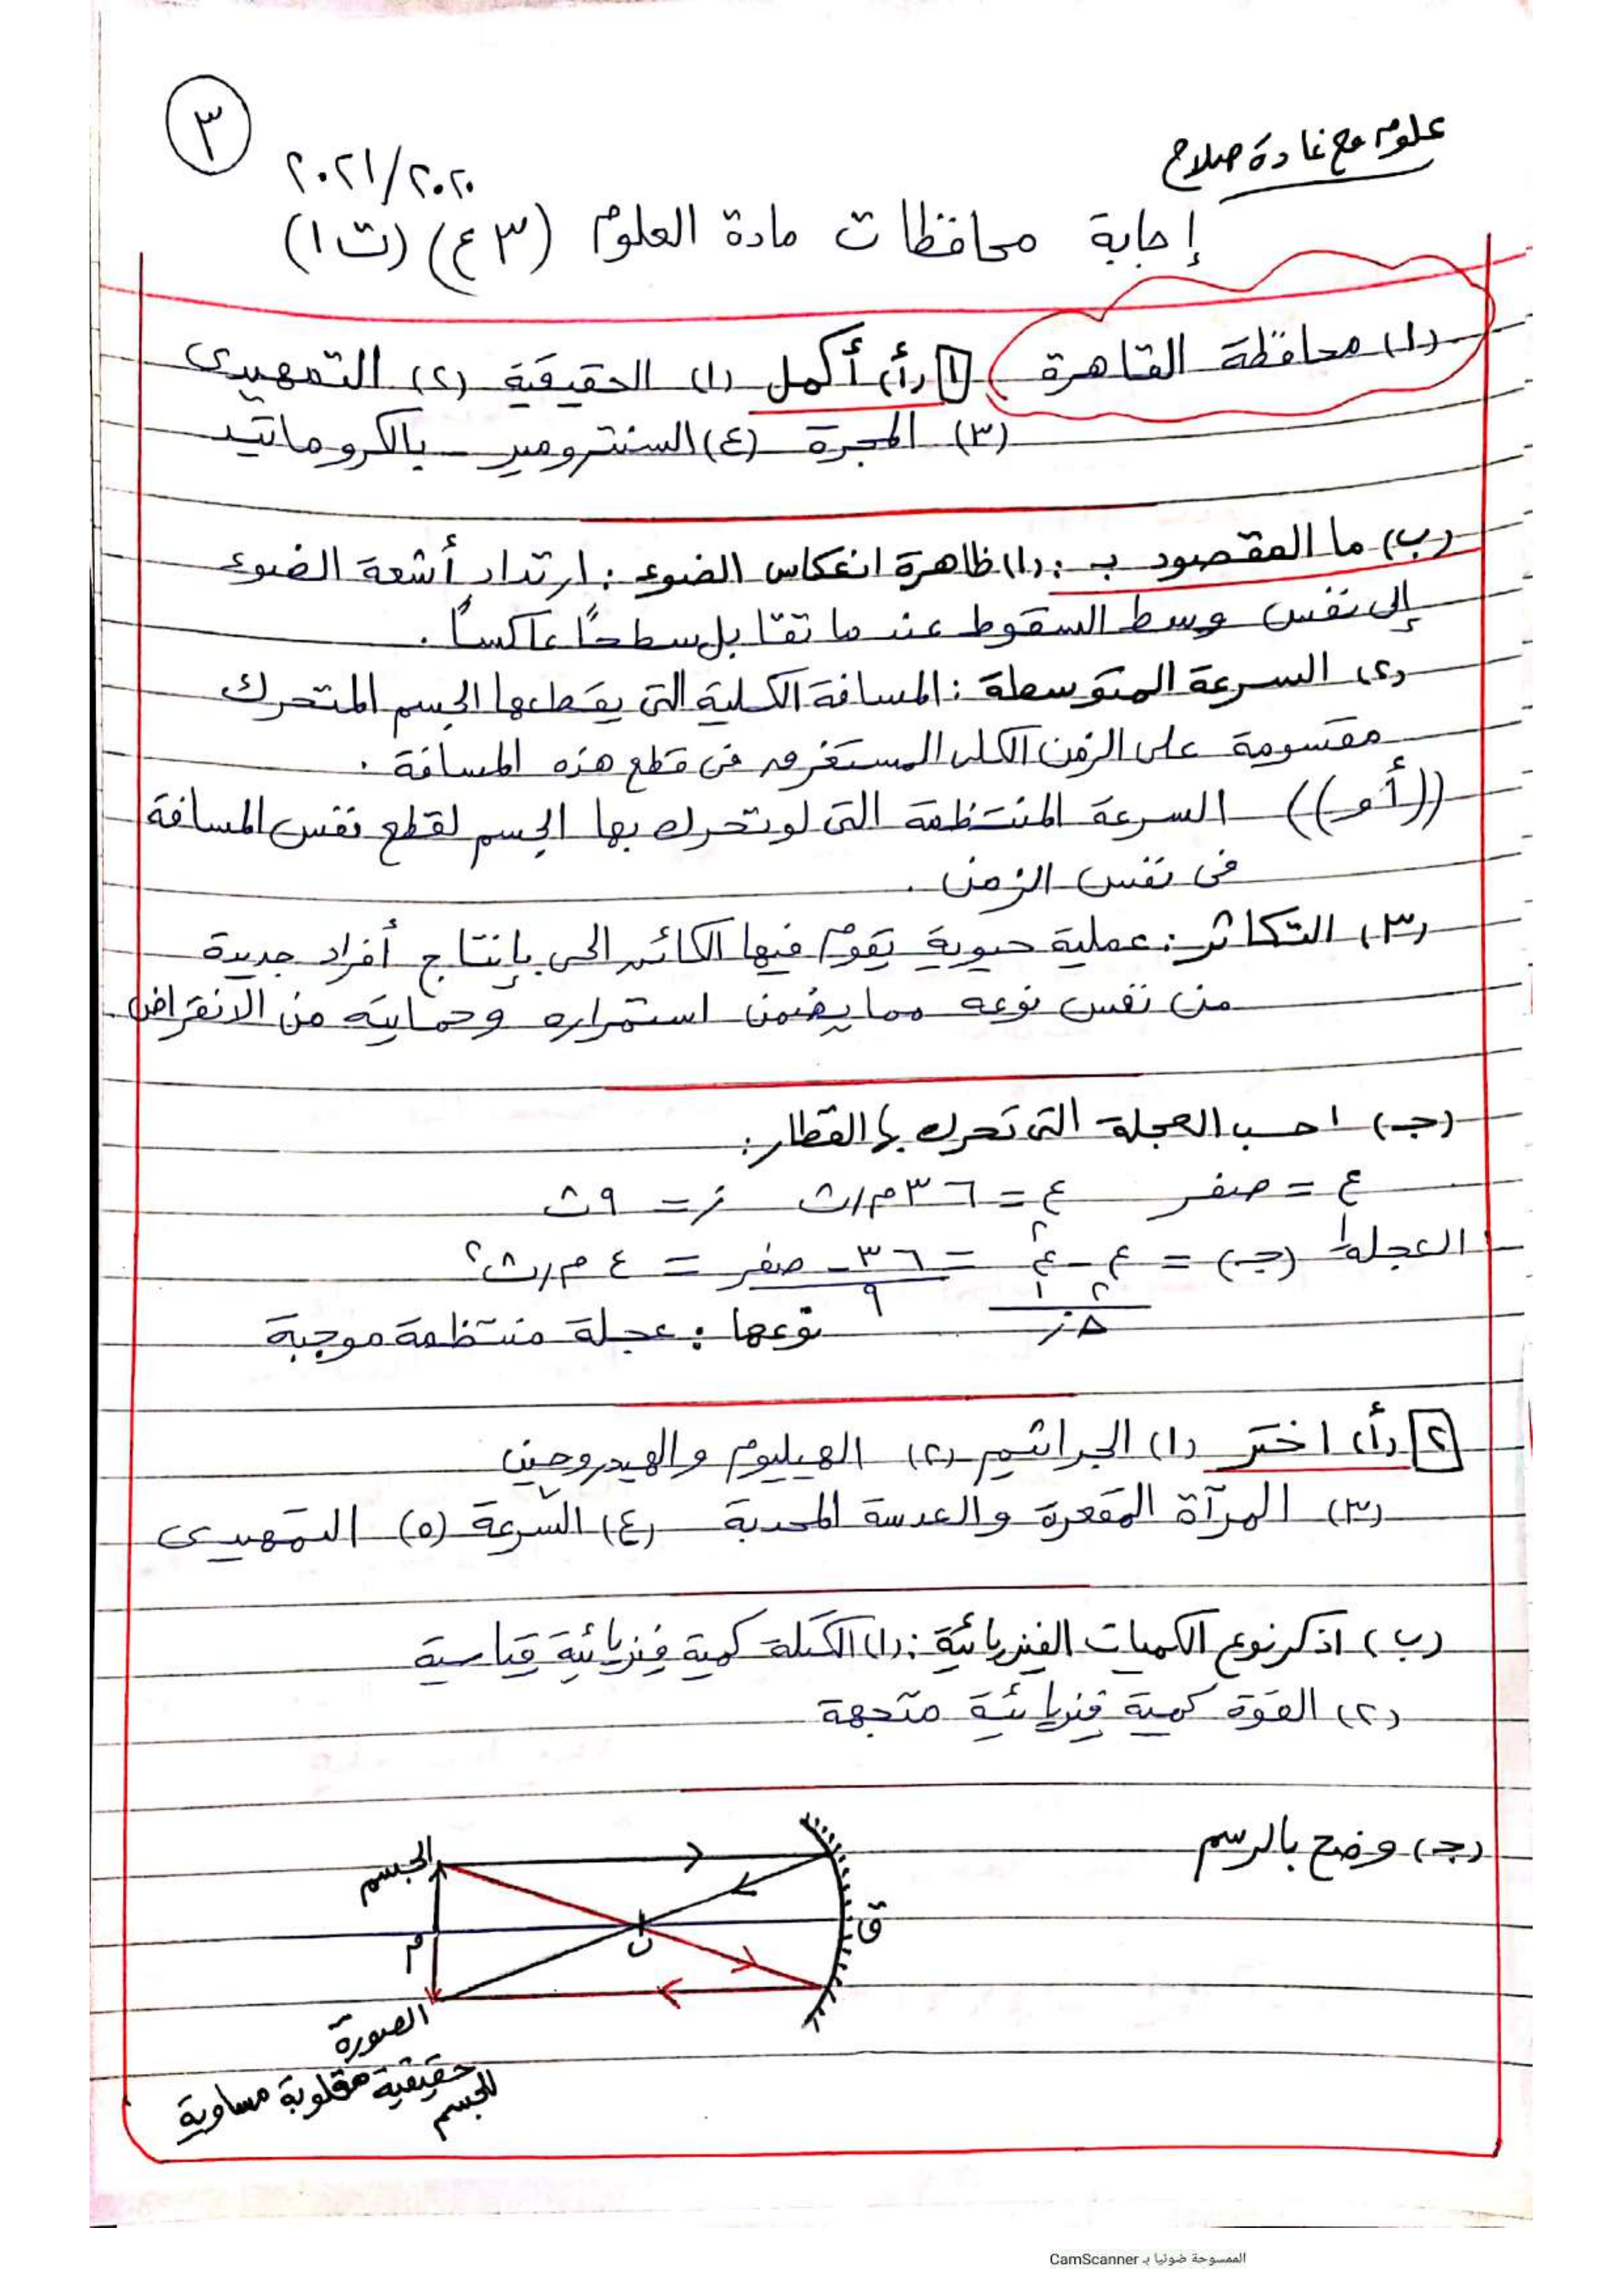 ٣
علوم مع غادة صلاح
٢٠٢١/٢٠٢٠
إجابة محافظات مادة العلوم (٣ ع) (ت ١)
(١) محافظة القاهرة ١ (أ) أكمل (١) الحقيقية (٢) التمهيدى
(٣) المجرة (٤) السنترومير - بالكروماتيد
(ب) ما المقصود بـ : (١) ظاهرة انعكاس الضوء : ارتداد أشعة الضوء
إلى نفس وسط السقوط عندما تقابل سطحًا عاكسًا .
(٢) السرعة المتوسطة : المسافة الكلية التى يقطعها الجسم المتحرك
مقسومة على الزمن الكلى المستغرق فى قطع هذه المسافة .
((أو)) السرعة المنتظمة التى لو تحرك بها الجسم لقطع نفس المسافة
فى نفس الزمن .
(٣) التكاثر : عملية حيوية يقوم فيها الكائن الحى بإنتاج أفراد جديدة
من نفس نوعه مما يضمن استمراره وحمايته من الانقراض .
(جـ) احسب العجلة التى تحرك بها القطار :
ع١ = صفر ع٢ = ٣٦ م/ث ز = ٩ ث
العجلة (جـ) = ع٢ - ع١ / Δز = ٣٦ - صفر / ٩ = ٤ م/ث٢
نوعها : عجلة منتظمة موجبة
٢ (أ) اختر (١) الجراثيم (٢) الهيليوم والهيدروجين
(٣) المرآة المقعرة والعدسة المحدبة (٤) السرعة (٥) التمهيدى
(ب) اذكر نوع الكميات الفيزيائية : (١) الكتلة كمية فيزيائية قياسية
(٢) القوة كمية فيزيائية متجهة
(جـ) وضح بالرسم
الجسم
ق
ب
م
الصورة
حقيقية مقلوبة مساوية
للجسم
الممسوحة ضوئيا بـ CamScanner